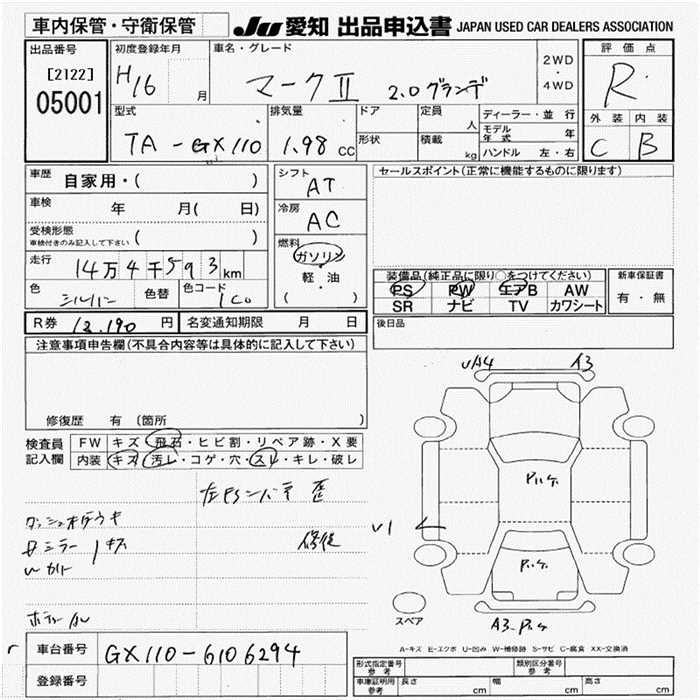 車内保管・守衛保管 JU 愛知 出品申込書 JAPAN USED CAR DEALERS ASSOCIATION
出品番号 初度登録年月 車名・グレード 評価点
[2122] H16 月 マークⅡ 2.0グランデ 2WD・4WD R
05001
型式 排気量 ドア 定員 人 ディーラー・並行 外装 内装
TA-GX110 1.98 cc 形状 積載 kg モデル年式 年 C B
ハンドル 左・右
車歴 自家用・( ) シフト AT セールスポイント(正常に機能するものに限ります)
車検 年 月( 日) 冷房 AC
受検形態 車検付きのみ記入して下さい ( ) 燃料 ガソリン
走行 14万4千593km 軽・油 装備品(純正品に限り○をつけてください) 新車保証書
色 シルバー 色替 色カラーコード 1C0 ( ) PS PW エアB AW 有・無
SR ナビ TV カワシート
R券 12,190 円 名変通知期限 月 日 後日品
注意事項申告欄(不具合内容等は具体的に記入して下さい)
UA4 A3
修復歴 有 〔箇所 〕
検査員記入欄 FW キズ・飛石・ヒビ割・リペア跡・X要
内装 キズ・汚レ・コゲ・穴・スレ・キレ・破レ
P.いケ
ダッシュ
U1
修復
P.いケ
スペア
A3.P.いケ
A-キズ E-エクボ U-凹み W-補修跡 S-サビ C-腐食 XX-交換済
車台番号 GX110-6106294
登録番号
形式指定番号 参考 類別区分番号 参考
車庫証明用 参考 長さ cm 幅 cm 高さ cm